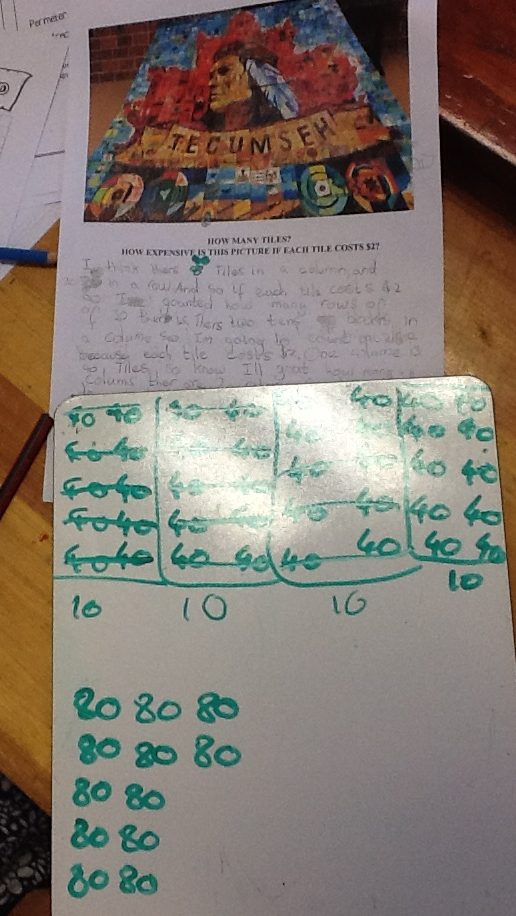 Perimeter
TECUMSEH
HOW MANY TILES?
HOW EXPENSIVE IS THIS PICTURE IF EACH TILE COSTS $2?
I think thers Tiles in a column and
in a row And so if each tile costs $2
so I how many rows of
of 10 ther is. Thers two tens in
a column so I'm going to count
because each tile costs $2. One column is
Tiles to know I'll how many
colums ther are
40 40 40 40 40 40 40
40 40 40 40 40 40 40
40 40 40 40 40 40 40
40 40 40 40 40 40 40 40
40 40 40 40 40 40 40 40
10 10 10 10
80 80 80
80 80 80
80 80
80 80
80 80